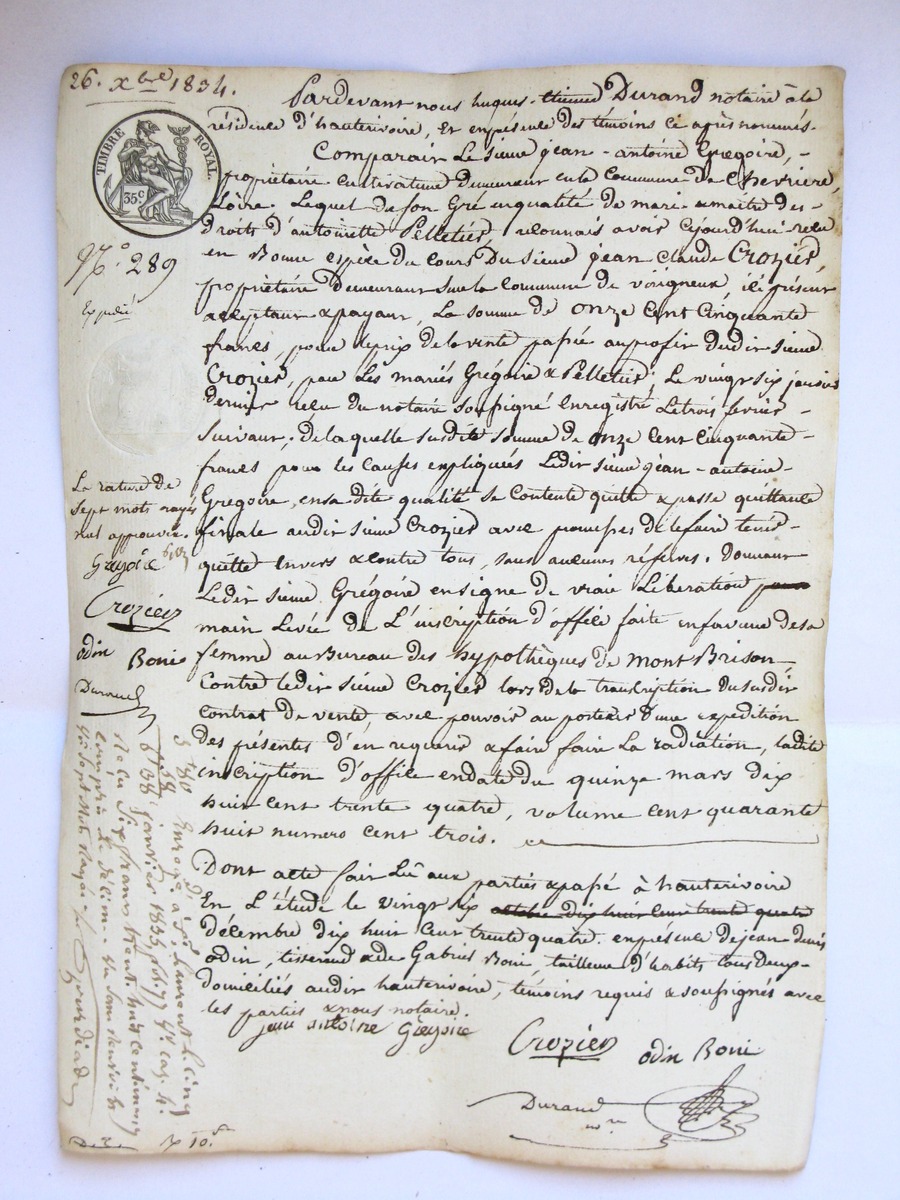 26. xbre 1834.
TIMBRE ROYAL.
35c
N.° 289
Expédié
Pardevant nous hugues-thieme Durand notaire à la
résidence d'hauterivoire, Et en présence des temoins ci après nommés.
Comparait Le sieur jean-antoine Grégoire,
propriétaire cultivateur demeurant en la Commune de Chevrière,
Loire. Lequel de son Gré en qualité de mari & maître des
droits d'antoinette Pelletier, reconnait avoir Cejourd'hui reçu
en Bonne espèce du Cours Du sieur jean Claude Crozier,
propriétaire demeurant sur la Commune de virigneux, ici présent
acceptant & payant, La somme de onze Cent Cinquante
francs, pour le prix de la vente passée au profit dudit sieur
Crozier, par Les mariés Grégoire & Pelletier, Le vingt six janvier
dernier reçu du notaire soussigné Enregistré Le trois fevrier
suivant; de laquelle susdite somme de onze Cent Cinquante
francs pour les Causes expliquées Ledit sieur jean-antoine
Grégoire, en sa dite qualité se Contente quitte & passe quittance
finale audit sieur Crozier avec promesses de le faire tenir
quitte Envers & Contre tous, sans aucunes réserves. Donnant
Ledit sieur Grégoire en signe de vraie Libération
main Levée de L'inscription d'office faite en faveur de sa
femme au Bureau des hypothèques de MontBrison
Contre ledit sieur Crozier lors de la transcription du susdit
Contrat de vente, avec pouvoir au porteur d'une expédition
des présentes d'en requerir & faire faire La radiation, ladite
inscription d'office en date du quinze mars dix
huit cent trente quatre, volume cent quarante
huit numero cent trois.
Dont acte fait Lû aux parties & passé à hauterivoire
En L'étude le vingt six octobre dix huit Cent trente quatre
décembre dix huit Cent trente quatre. en présence de jean denis
odin, tisserand & de Gabriel Boni, tailleur d'habits tous deux
domiciliés audit hauterivoire, témoins requis & soussignés avec
les parties & nous notaire.
jean antoine Grégoire
Crozier
odin Boni
Durand
nre
La rature de
sept mots rayés
nul approuvée.
Grégoire
Crozier
odin Boni
Durand
Enregé. à St. Laurent le cinq
janvier 1835, fol. 77 Vo. cas. 4.
Reçu six francs trente huit centimes
compris le décime.
10.